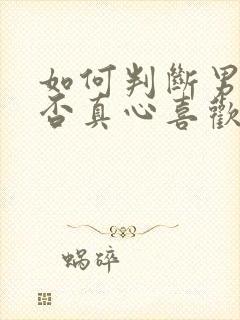 如何判斷男
否真心喜歡
蝸碎